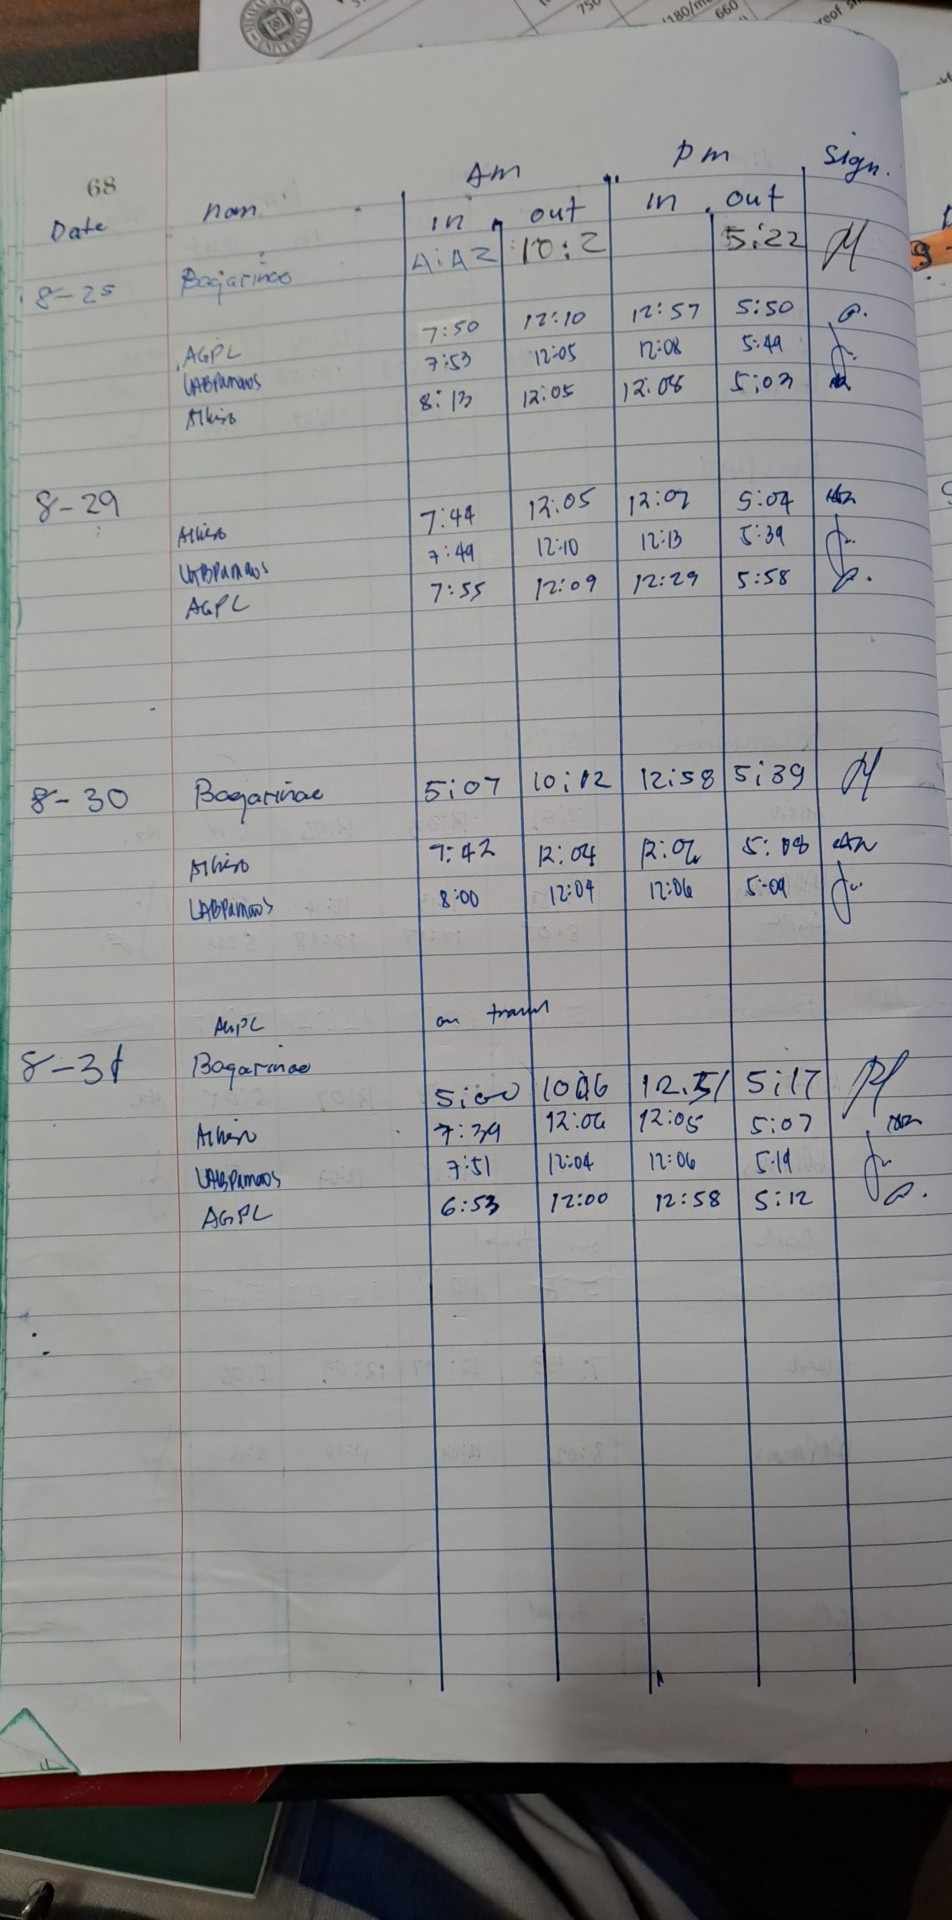 750
180/m
660
reof
68
Am Pm Sign.
Date nam in out in out
8-25 Bagarinao A:AZ 10:2 5:22
AGPL 7:50 12:10 12:57 5:50
LABPamaos 7:53 12:05 12:08 5:49
8:13 12:05 12:08 5:03
8-29
7:44 12:05 12:07 5:04
LABPamaos 7:49 12:10 12:13 5:39
AGPL 7:55 12:09 12:29 5:58
8-30 Bagarinao 5:07 10:12 12:58 5:39
7:42 12:04 12:06 5:08
LABPamaos 8:00 12:04 12:06 5:09
AGPL on travel
8-31 Bagarinao 5:00 10:16 12:51 5:17
7:39 12:06 12:05 5:07
LABPamaos 7:51 12:04 12:06 5:19
AGPL 6:53 12:00 12:58 5:12